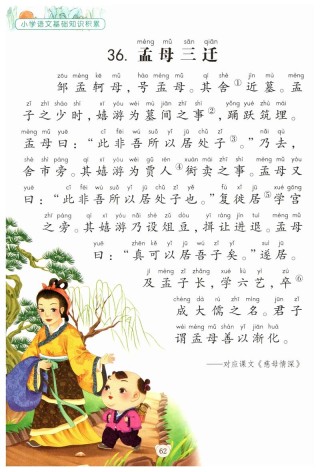 小学语文基础知识积累
mèng mǔ sān qiān
36. 孟母三迁
zōu mèng kē mǔ hào mèng mǔ qí shè jìn mù mèng
邹孟轲母，号孟母。其舍①近墓。孟
zǐ zhī shào shí xī yóu wéi mù jiān zhī shì yǒng yuè zhù mái
子之少时，嬉游为墓间之事②，踊跃筑埋。
mèng mǔ yuē cǐ fēi wú suǒ yǐ jū chǔ zǐ nǎi qù
孟母曰：“此非吾所以居处子③。”乃去，
shè shì páng qí xī yóu wéi gǔ rén xuàn mài zhī shì mèng mǔ yòu
舍市旁。其嬉游为贾人④衒卖之事。孟母又
yuē cǐ fēi wú suǒ yǐ jū chǔ zǐ yě fù xǐ jū xué gōng
曰：“此非吾所以居处子也。”复徙居⑤学宫
zhī páng qí xī yóu nǎi shè zǔ dòu yī ràng jìn tuì mèng mǔ
之旁。其嬉游乃设俎豆，揖让进退。孟母
yuē zhēn kě yǐ jū wú zǐ yǐ suì jū
曰：“真可以居吾子矣。”遂居。
jí mèng zǐ zhǎng xué liù yì zú
及孟子长，学六艺，卒⑥
chéng dà rú zhī míng jūn zǐ
成大儒之名。君子
wèi mèng mǔ shàn yǐ jiàn huà
谓孟母善以渐化。
——对应课文《慈母情深》
62